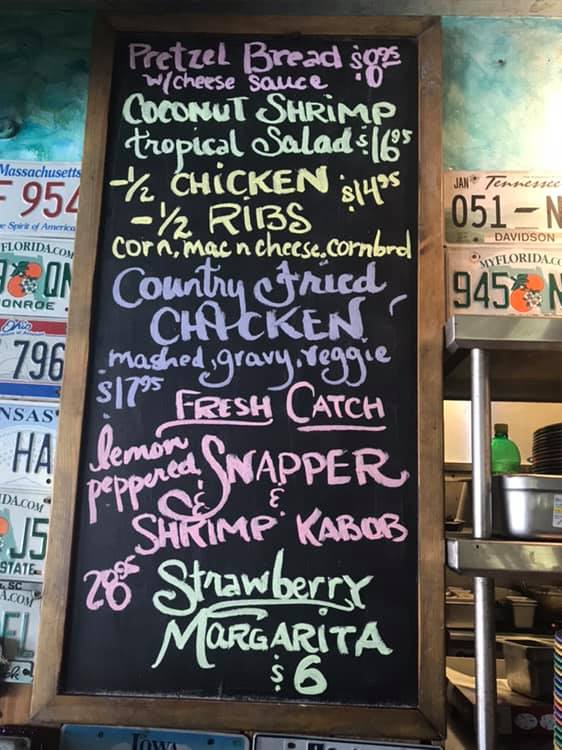 Pretzel Bread $8.95
w/cheese sauce
COCONUT SHRIMP
tropical Salad $16.95
-1/2 CHICKEN $14.95
-1/2 RIBS
corn, mac n cheese, cornbrd
Country Fried
CHICKEN
mashed, gravy, veggie
$17.95
FRESH CATCH
lemon
peppered SNAPPER
& &
SHRIMP KABOB
28.95
Strawberry
MARGARITA
$6
Massachusetts
954
e Spirit of America
FLORIDA.COM
QN
ONROE
Ohio
796
NSAS
HA
IDA.COM
J5
STATE
A.COM
JAN Tennessee
051-N
DAVIDSON
MYFLORIDA.CO
945 N
IOWA